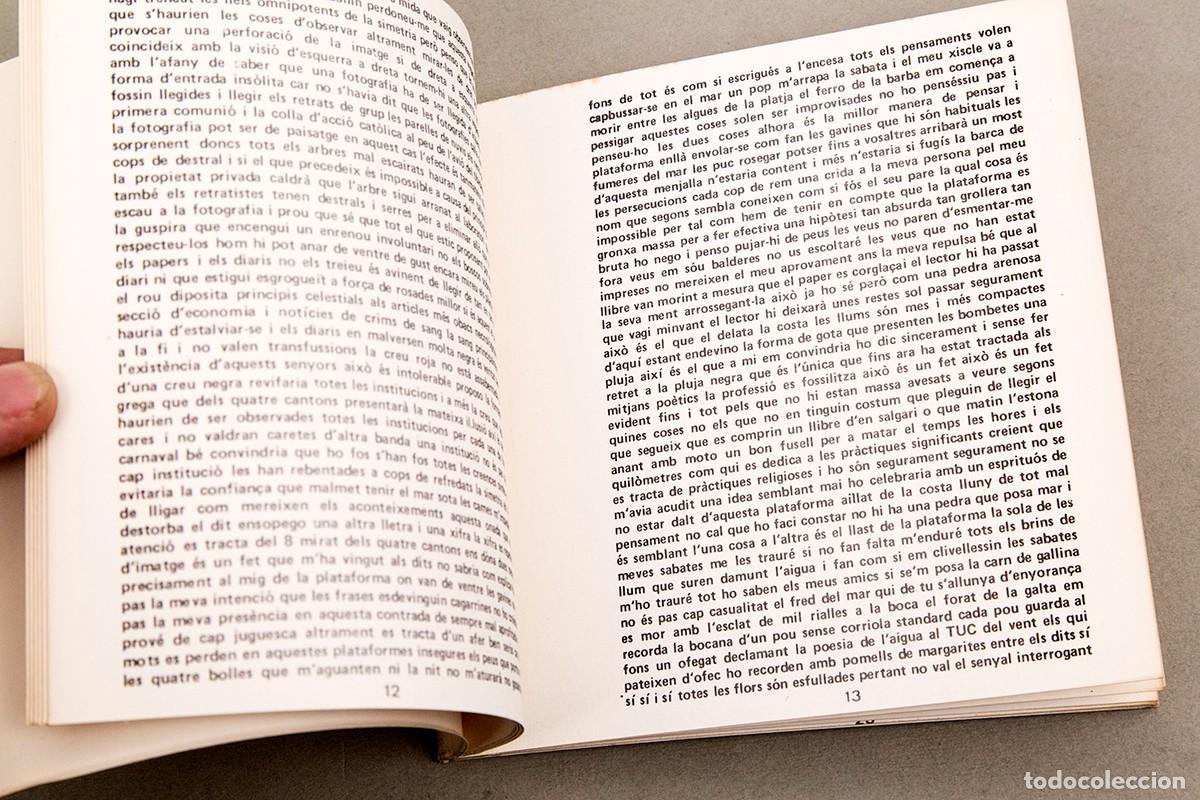 mida que vaig
hagi trencat les lleis omnipotents de la simetria però penso que
que s'haurien les coses d'observar altrament mirar-les de
provocar una perforació de la imatge si de dreta a
coincideix amb la visió d'esquerra a dreta tornem-hi una altra
amb l'afany de saber que una fotografia ha de ser llegida
forma d'entrada insòlita car no s'havia dit que les fotografies
fossin llegides i llegir els retrats de grup les parelles de nuvis
primera comunió i la colla d'acció catòlica al peu de l'avió
la fotografia pot ser de paisatge en aquest cas l'efecte és
sorprenent doncs tots els arbres mal escairats hauran de ser
cops de destral i si el que precedeix és impossible a causa del
la propietat privada caldrà que l'arbre sigui arranat al
també els retratistes tenen destrals i serres per a eliminar
escau a la fotografia i prou que sé que tot el que estic
la guspira que encengui un enrenou involuntari no els boscos
respecteu-los hom hi pot anar de ventre de gust encara
els papers i els diaris no els treieu és avinent de llegir de
diari ni que estigui esgrogueït a força de rosades millor si és
el rou diposita principis celestials als articles més obacs
secció d'economia i notícies de crims de sang la sang
hauria d'estalviar-se i els diaris en malversen molta negra és
a la fi i no valen transfussions la creu roja no està
l'existència d'aquests senyors això és intolerable proposo la
d'una creu negra revifaria totes les institucions i a més la creu
grega que dels quatre cantons presentarà la mateixa il.lusió
haurien de ser observades totes les institucions per cada
cares i no valdran caretes d'altra banda una institució no és
carnaval bé convindria que ho fos s'han fos totes les creences
cap institució les han rebentades a cops de refredats la simetria
evitaria la confiança que malmet tenir el mar sota les cames
de lligar com mereixen els aconteixements aquesta onada
destorba el dit ensopego una altra lletra i una xifra la xifra
atenció es tracta del 8 mirat dels quatre cantons ens dóna dues
d'imatge és un fet que m'ha vingut als dits no sabria com
precisament al mig de la plataforma on van de ventre les
pas la meva intenció que les frases esdevinguin cagarrines no ho
pas la meva presència en aquesta contrada de sempre mal
prové de cap juguesca altrament es tracta d'un afer ben
mots es perden en aquestes plataformes insegures els peus que
les quatre bolles que m'aguanten ni la nit no m'aturarà no
12
fons de tot és com si escrigués a l'encesa tots els pensaments volen
capbussar-se en el mar un pop m'arrapa la sabata i el meu xiscle va a
morir entre les algues de la platja el ferro de la barba em comença a
pessigar aquestes coses solen ser improvisades no ho penséssiu pas i
penseu-ho les dues coses alhora és la millor manera de pensar i
plataforma enllà envolar-se com fan les gavines que hi són habituals les
fumeres del mar les puc rosegar potser fins a vosaltres arribarà un most
d'aquesta menjalla n'estaria content i més n'estaria si fugís la barca de
les persecucions cada cop de rem una crida a la meva persona pel meu
nom que segons sembla coneixen com si fós el seu pare la qual cosa és
impossible per tal com hem de tenir en compte que la plataforma es
gronxa massa per a fer efectiva una hipòtesi tan absurda tan grollera tan
bruta ho nego i penso pujar-hi de peus les veus no paren d'esmentar-me
fora veus em sóu balderes no us escoltaré les veus que no han estat
impreses no mereixen el meu aprovament ans la meva repulsa bé que al
llibre van morint a mesura que el paper es corglaçai el lector hi ha passat
la seva ment arrossegant-la això ja ho sé però com una pedra arenosa
que vagi minvant el lector hi deixarà unes restes sol passar segurament
això és el que el delata la costa les llums són mes i més compactes
d'aquí estant endevino la forma de gota que presenten les bombetes una
pluja així és el que a mi em convindria ho dic sincerament i sense fer
retret a la pluja negra que és l'única que fins ara ha estat tractada als
mitjans poètics la professió es fossilitza això és un fet això és un fet
evident fins i tot pels que no hi estan massa avesats a veure segons
quines coses no els que no en tinguin costum que pleguin de llegir el
que segueix que es comprin un llibre d'en salgari o que matin l'estona
anant amb moto un bon fusell per a matar el temps les hores i els
quilòmetres com qui es dedica a les pràctiques significants creient que
es tracta de pràctiques religioses i ho són segurament segurament no se
m'havia acudit una idea semblant mai ho celebraria amb un esprituós de
no estar dalt d'aquesta plataforma aillat de la costa lluny de tot mal
pensament no cal que ho faci constar no hi ha una pedra que posa mar i
és semblant l'una cosa a l'altra és el llast de la plataforma la sola de les
meves sabates me les trauré si no fan falta m'enduré tots els brins de
llum que suren damunt l'aigua i fan com si em clivellessin les sabates
m'ho trauré tot ho saben els meus amics si se'm posa la carn de gallina
no és pas cap casualitat el fred del mar qui de tu s'allunya d'enyorança
es mor amb l'esclat de mil rialles a la boca el forat de la galta em
recorda la bocana d'un pou sense corriola standard cada pou guarda al
fons un ofegat declamant la poesia de l'aigua al TUC del vent els qui
pateixen d'ofec ho recorden amb pomells de margarites entre els dits sí
sí sí i sí totes les flors són esfullades pertant no val el senyal interrogant
13
todocoleccion